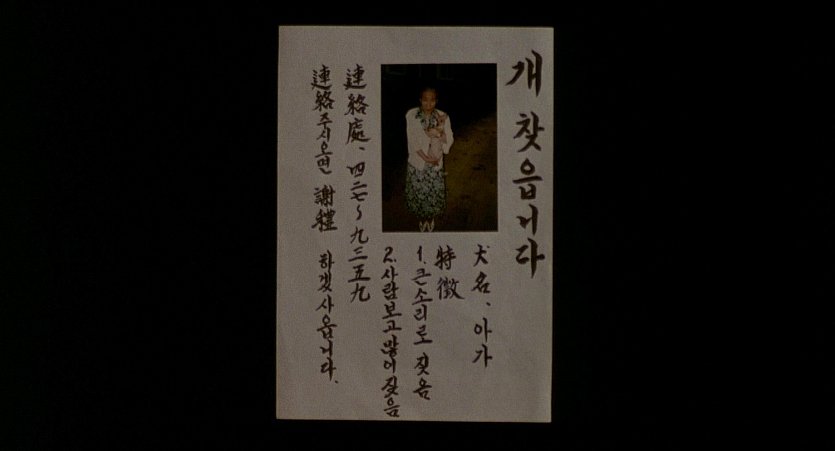 개 찾읍니다
犬名、아가
特徵
1. 큰소리로 짖음
2. 사람보고 많이 짖음
連絡處、四二七～九三五九
連絡주시오면 謝禮 하겠사옵니다.